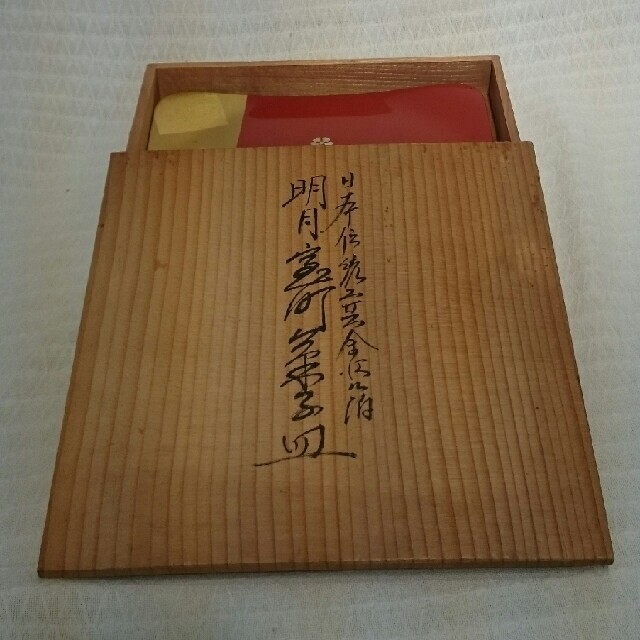 日本伝統工芸金沢箔
明月 町菓子皿